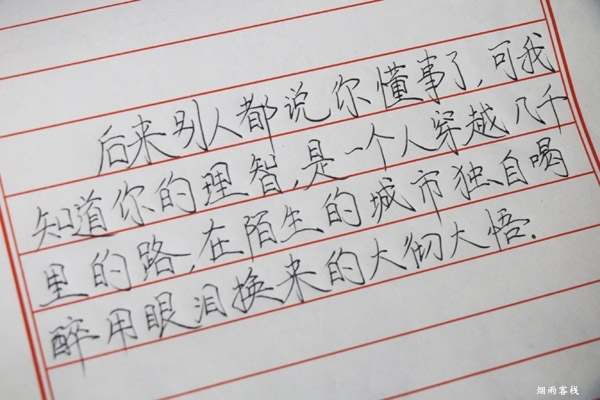 后来别人都说你懂事了,可我
知道你的理智,是一个人穿越几千
里的路,在陌生的城市独自喝
醉用眼泪换来的大彻大悟.
烟雨客栈